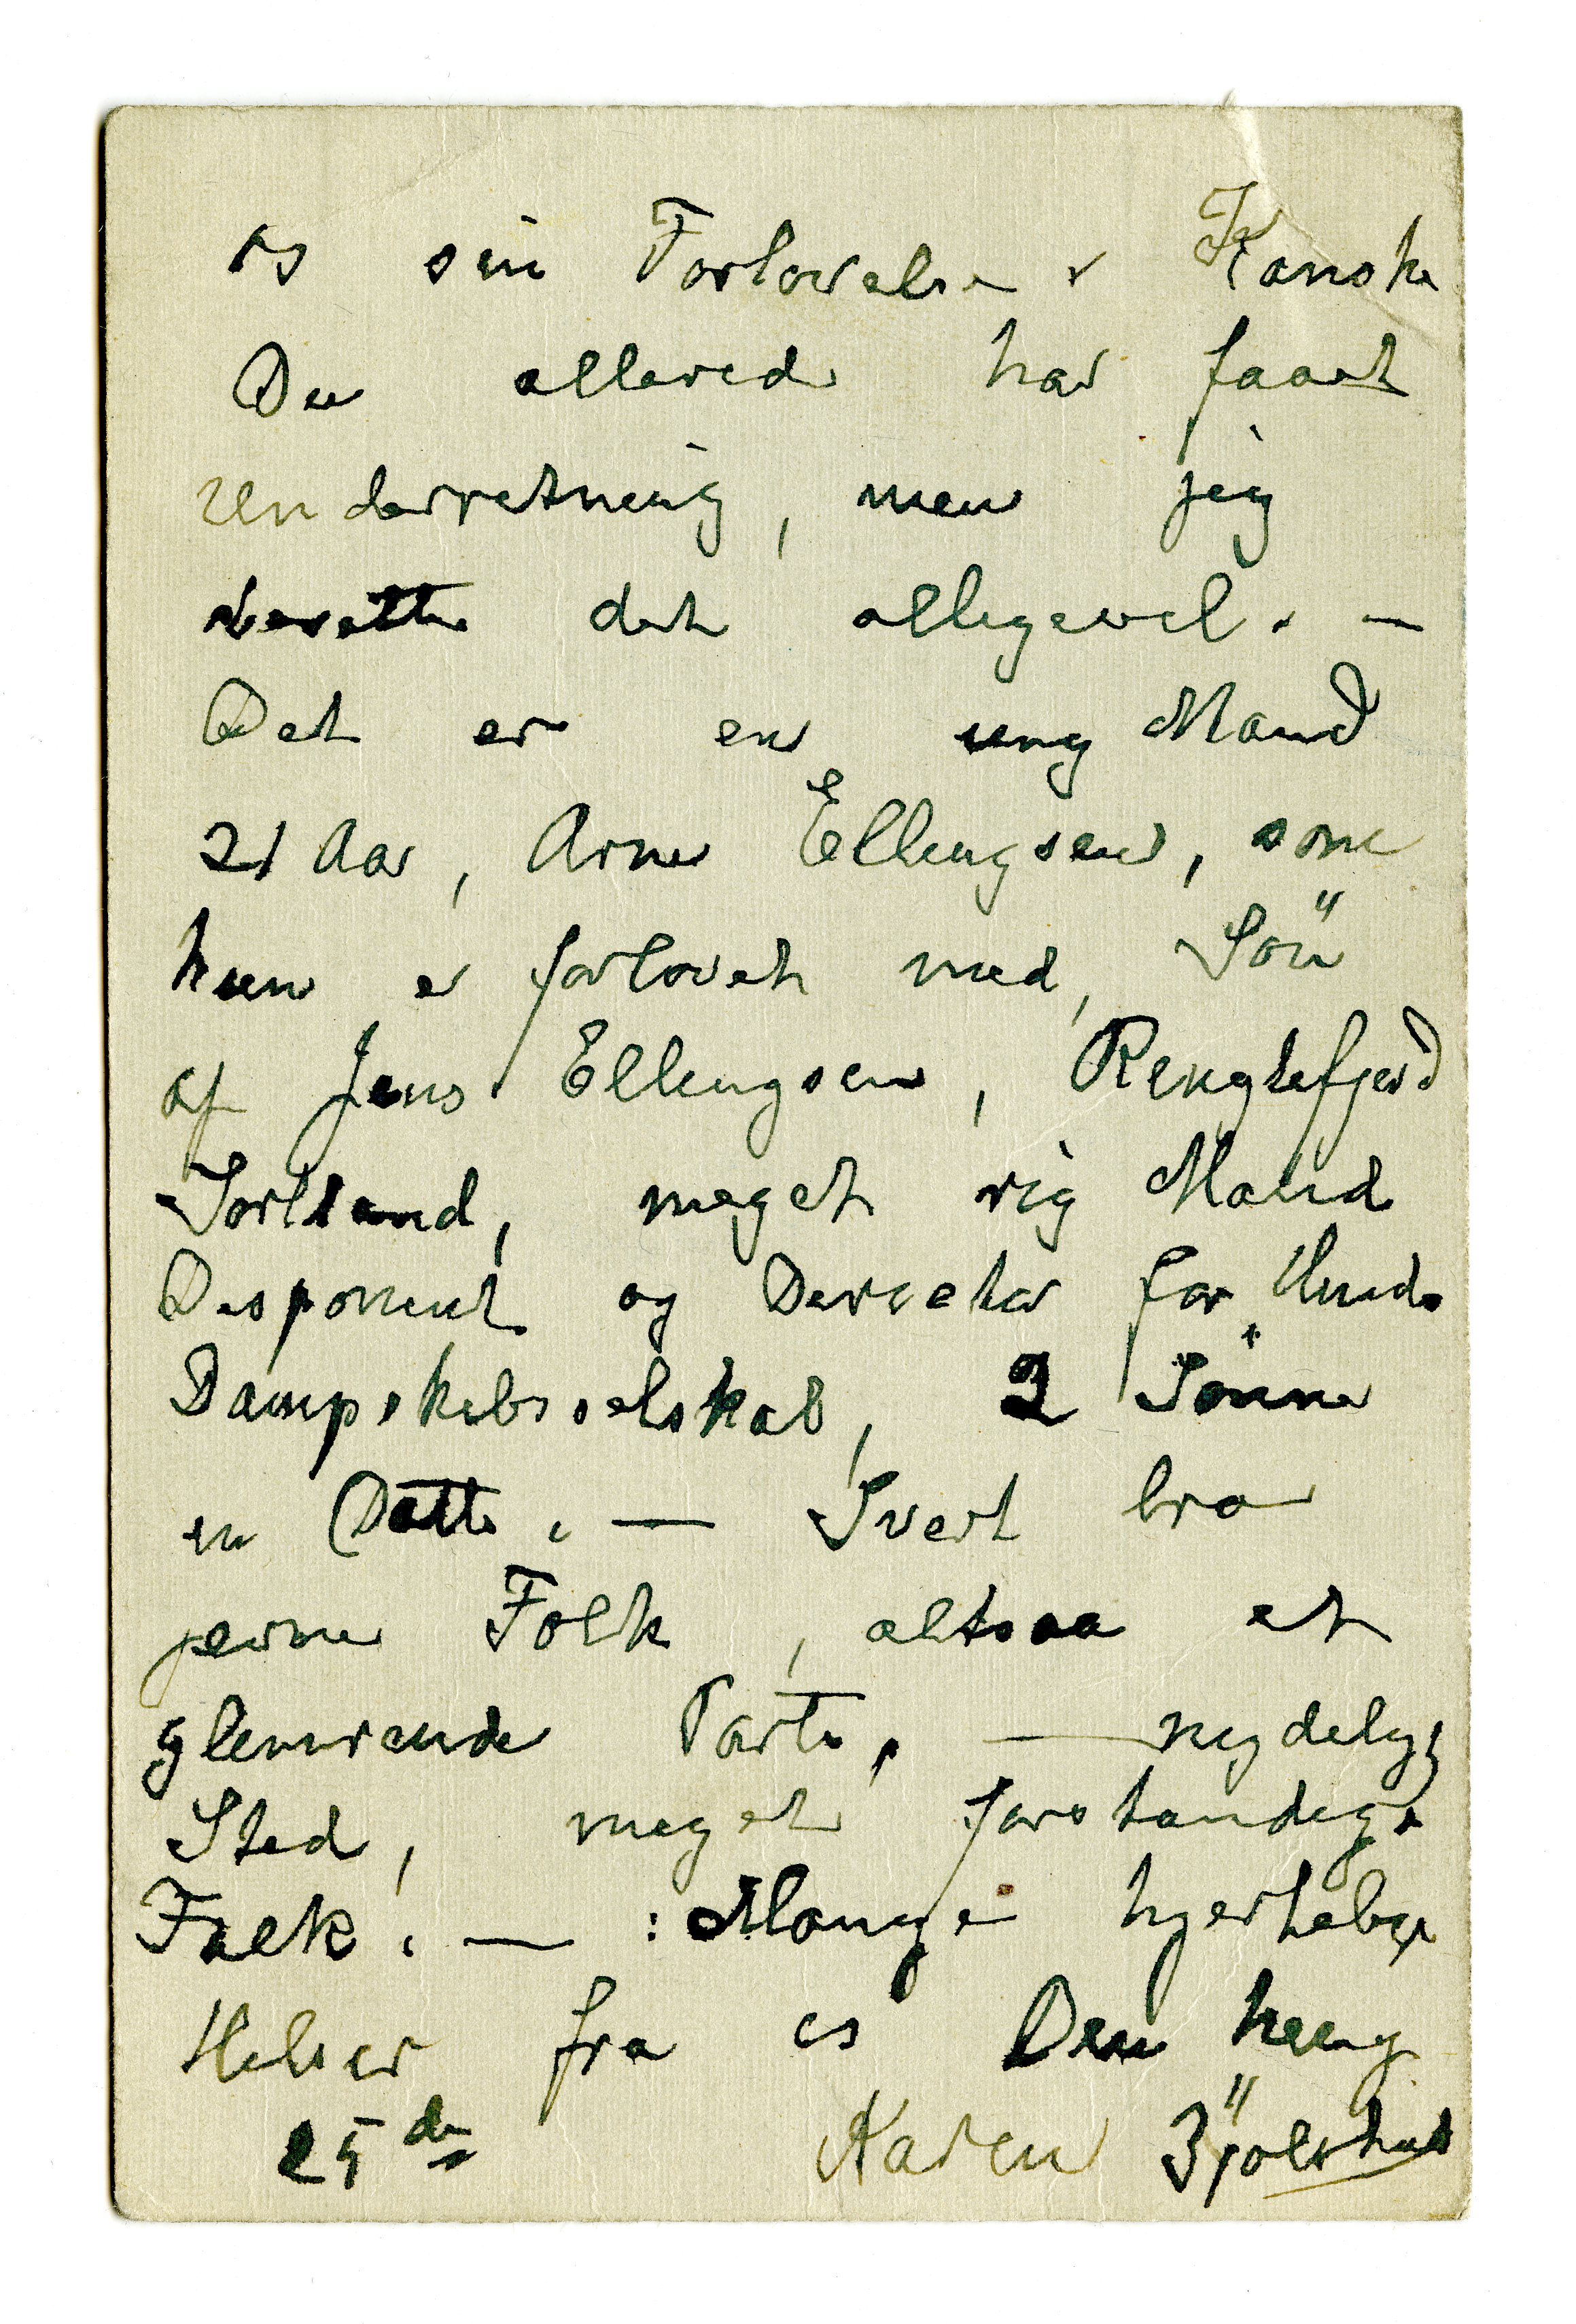 os sin Forlovelse. Kanske
Du allerede har faaet
Underretning, men jeg
beretter det alligevel. —
Det er en ung Mand
21 Aar, Arne Ellingsen, som
hun er forlovet med, Sön
af Jens Ellingsen,
Sortland, meget rig Mand
Disponent og Direcktør for
Dampskibsselskab, 2 Sönner
en Datter. — Svert bra
pene Folk, altsaa et
glimrende Parti, — nydelig
Sted, meget forstandige
Folk. — : Mange hjertelige
Hilsner fra os Din heng
25de Karen